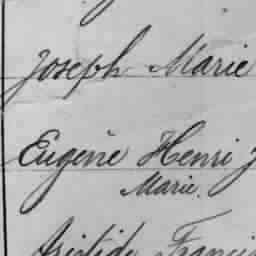 Joseph Marie
Eugène Henri
Marie.
Aristide Francis